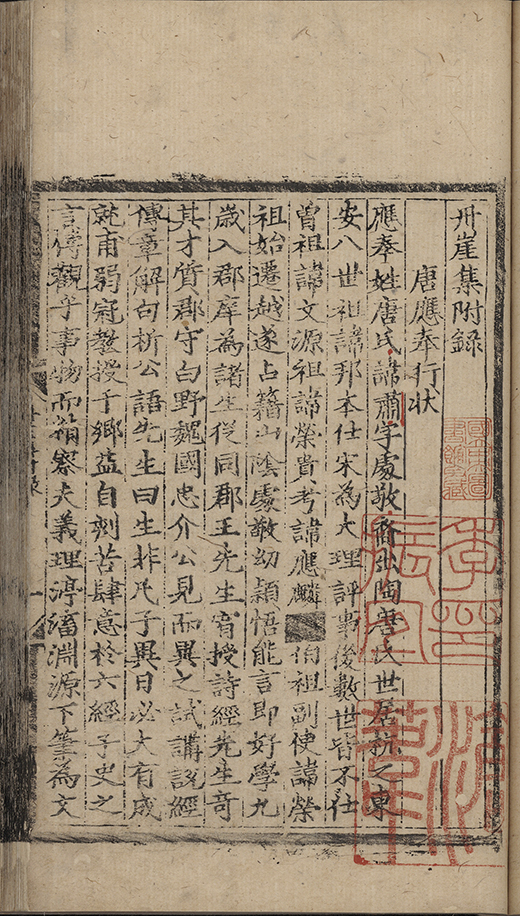 丹崖集附錄
唐應奉行狀
應奉姓唐氏諱肅字處敬裔出陶唐氏世居杭之東
安八世祖諱邦本仕宋為大理評事後數世皆不仕
曾祖諱文源祖諱榮貴考諱應麟伯祖副使諱榮
祖始遷越遂占籍山陰處敬幼穎悟能言即好學九
歲入郡庠為諸生從同郡王先生宥授詩經先生奇
其才質郡守白野魏國忠介公見而異之試講說經
傳章解句析公語先生曰生非凡子異日必大有成
就甫弱冠教授于鄉益自刻苦肆意於六經子史之
言傅觀乎事物而精察夫義理渟滀淵源下筆為文